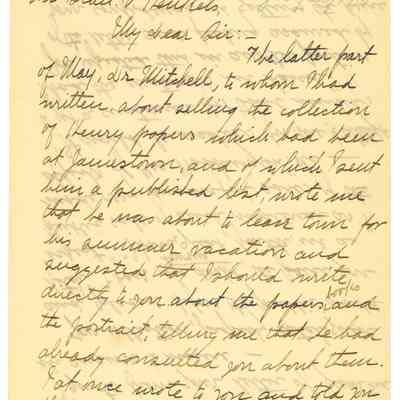 My Dear Sir:—
The latter part
of May, Dr. Mitchell, to whom I had
written about selling the collection
of Henry papers which had been
at Jamestown, and of which I sent
him a published list, wrote me
that he was about to leave town for
his summer vacation and
suggested that I should write
directly to you about the papers, and
the portrait, telling me that he had
already consulted you about them.
I at once wrote to you and told you